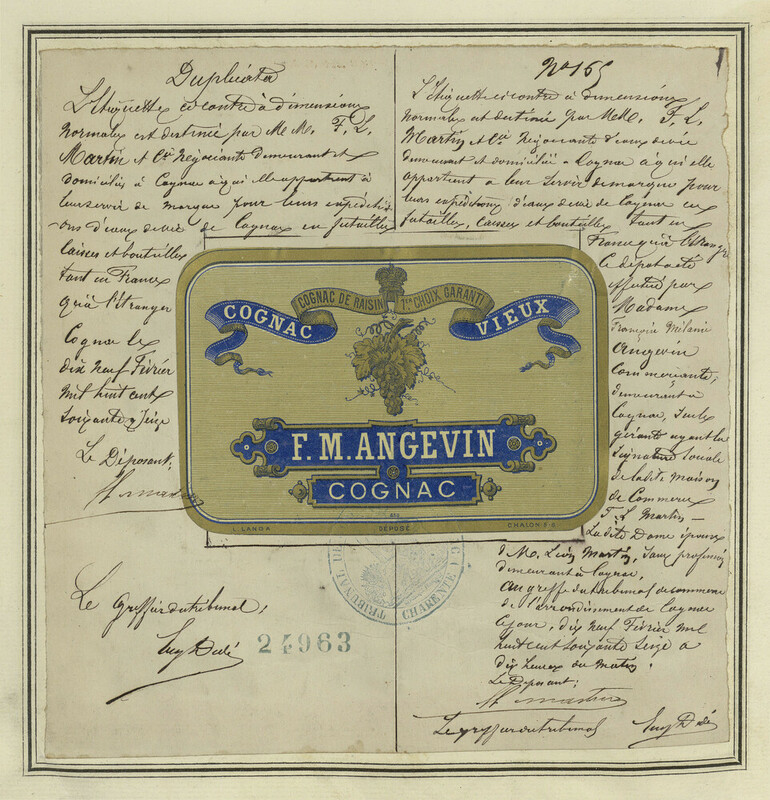 Duplicata
L'Etiquette ci contre à dimensions
Normales est destinée par MM. F. L.
Martin et Cie Négociants demeurant et
domiciliés à Cognac à qui elle appartient à
leur servir de marque pour leurs expéditi
ons d'eaux de vie de Cognac en futailles
caisses et bouteilles
tant en France
qu'à l'étranger
Cognac le
dix Neuf Février
Mil huit cent
soixante & seize
Le Déposant;
Le Greffier du tribunal,
24963
No 165
L'Etiquette ci contre à dimensions
Normales est destinée par MM. F. L.
Martin et Cie Négociants d'eaux de vie
demeurant et domiciliés à Cognac à qui elle
appartient à leur servir de marque pour
leurs expéditions d'eaux de vie de Cognac en
futailles, caisses et bouteilles tant en
France qu'à l'Etranger
Ce dépôt a été
effectué par
Madame
Françoise Mélanie
Angevin
Commerçante,
demeurant à
Cognac, seule
gérante ayant la
signature sociale
de ladite maison
de Commerce
F. L Martin —
Ladite Dame épouse
de Mr. Léon Martin, sans profession
demeurant à Cognac,
Au greffe du tribunal de commerce
de l'arrondissement de Cognac
Ce jour, dix neuf Février mil
huit cent soixante seize à
dix heures du matin.
Le Déposant;
Le greffier du tribunal
COGNAC DE RAISIN 1ER CHOIX GARANTI
COGNAC VIEUX
F. M. ANGEVIN
COGNAC
L. LANDA DÉPOSÉ CHALON S.S.
TRIBUNAL DE
CHARENTE